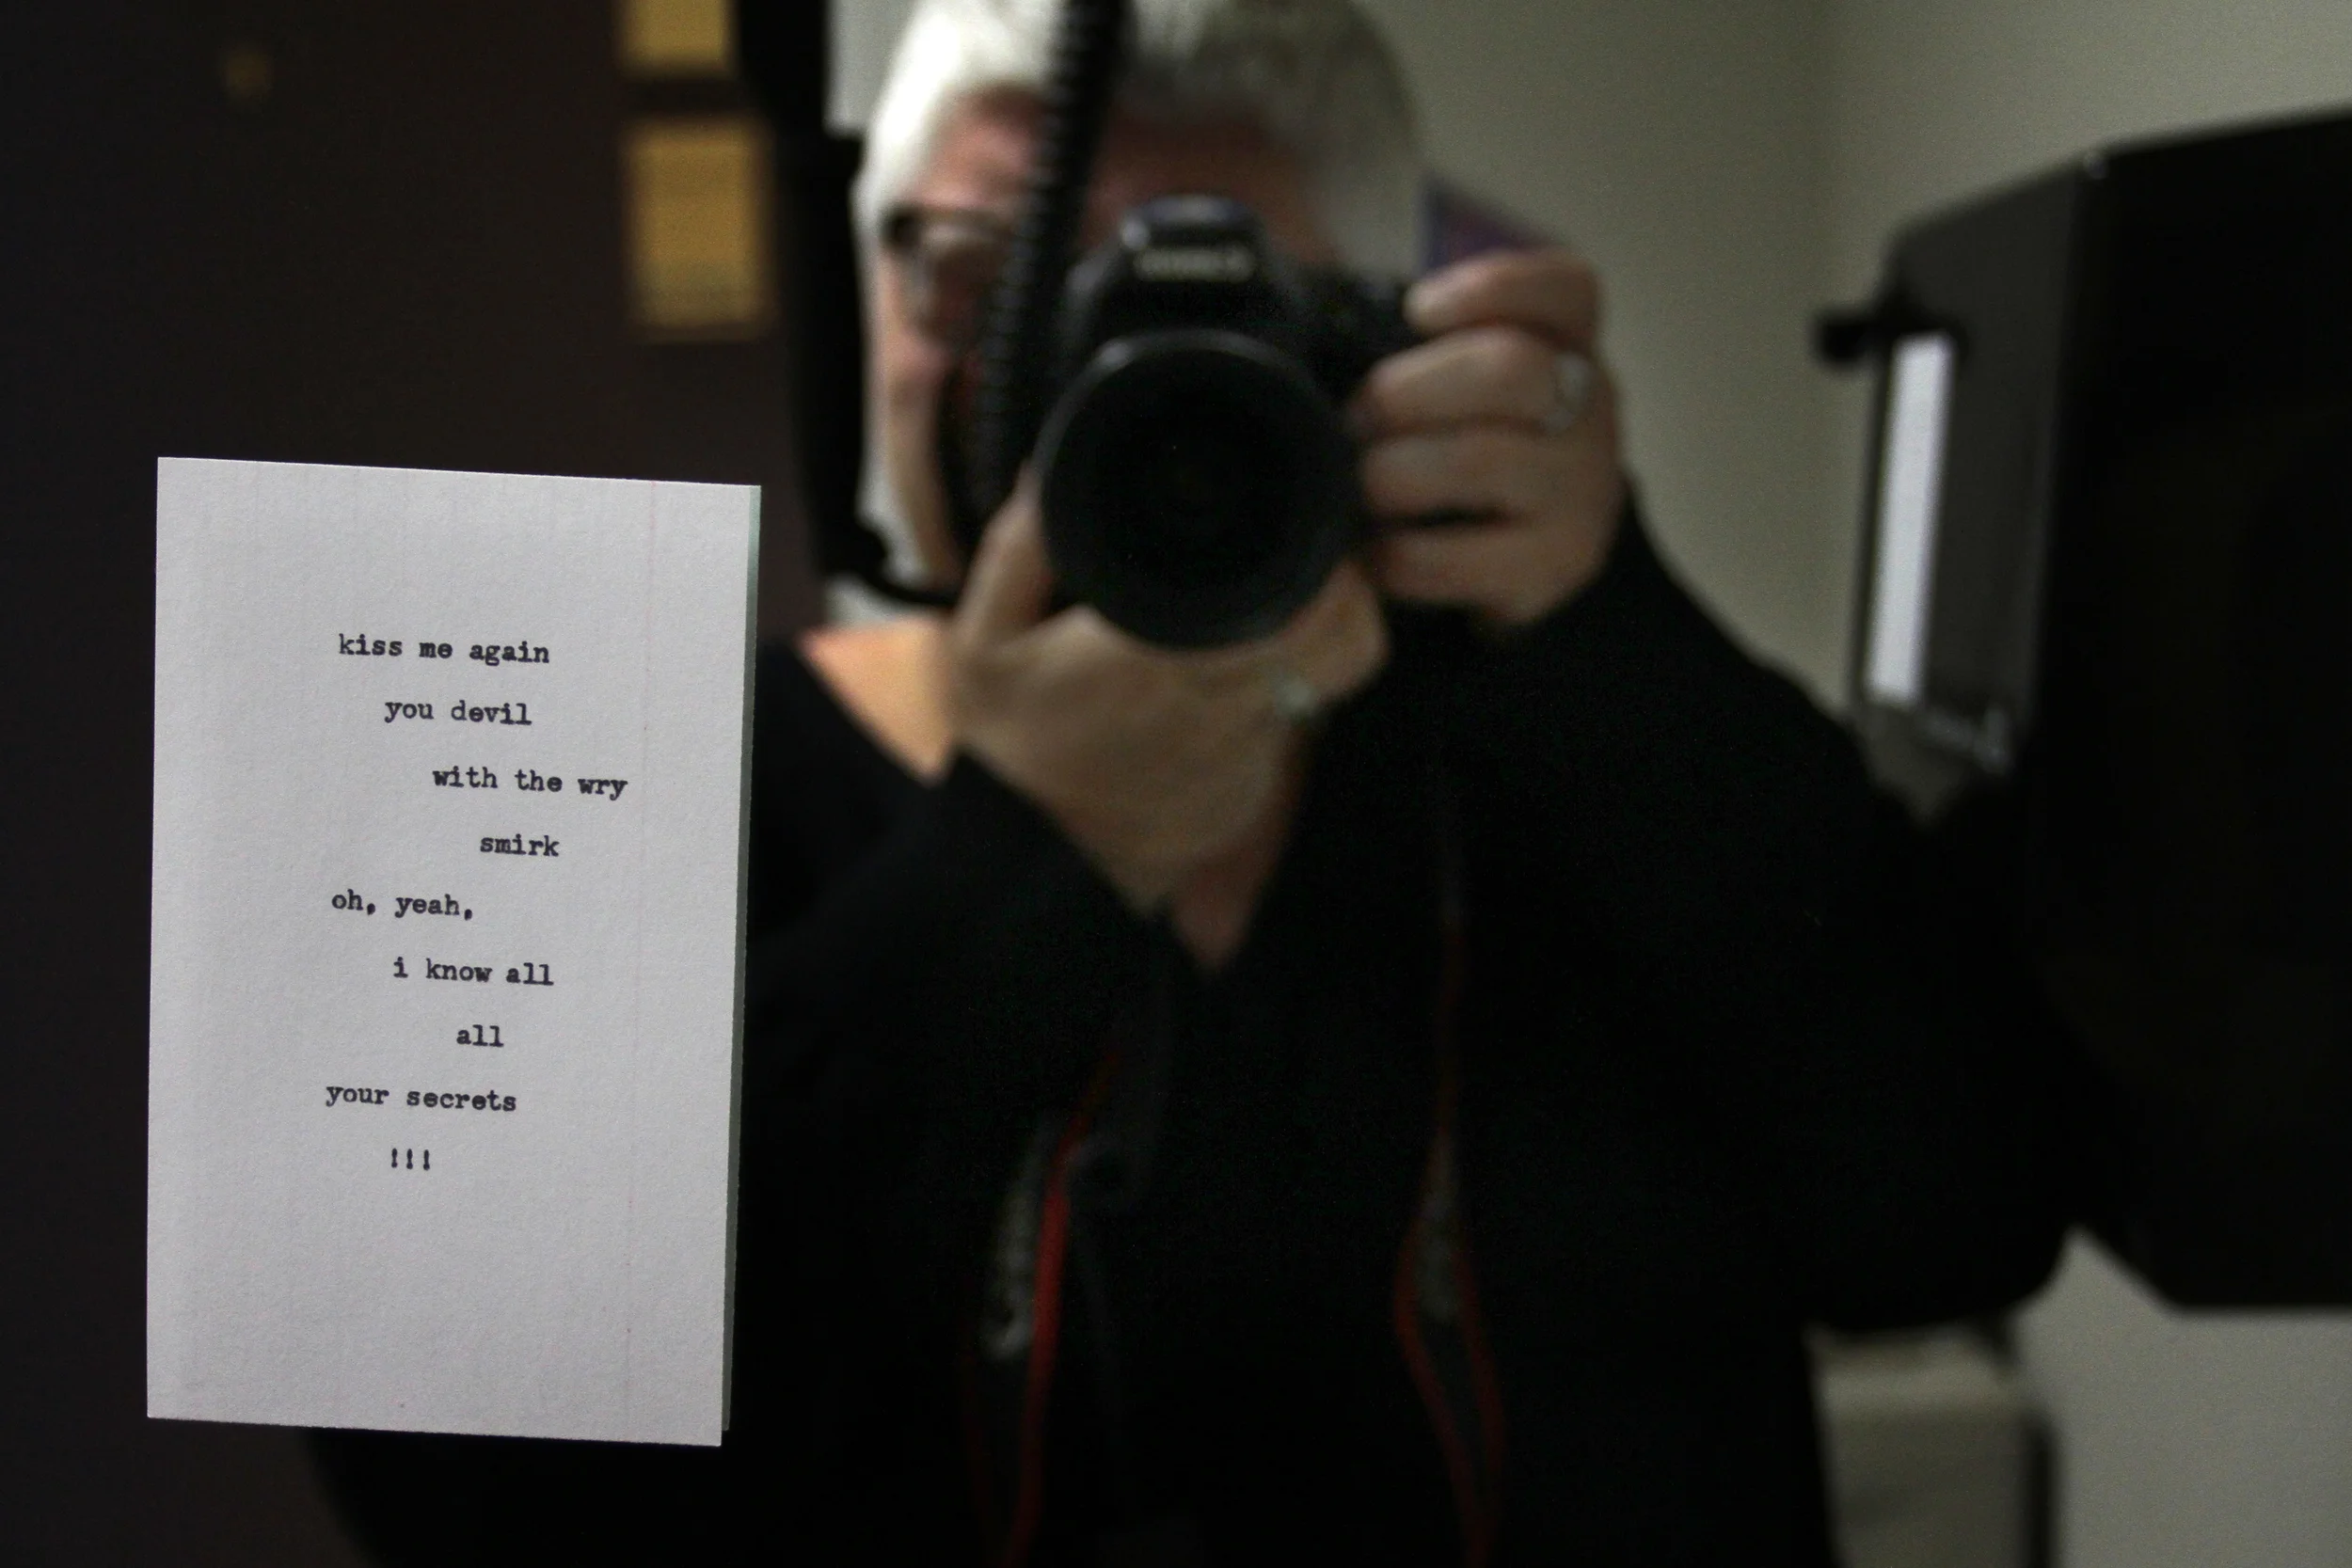 kiss me again
you devil
with the wry
smirk
oh, yeah,
i know all
all
your secrets
!!!